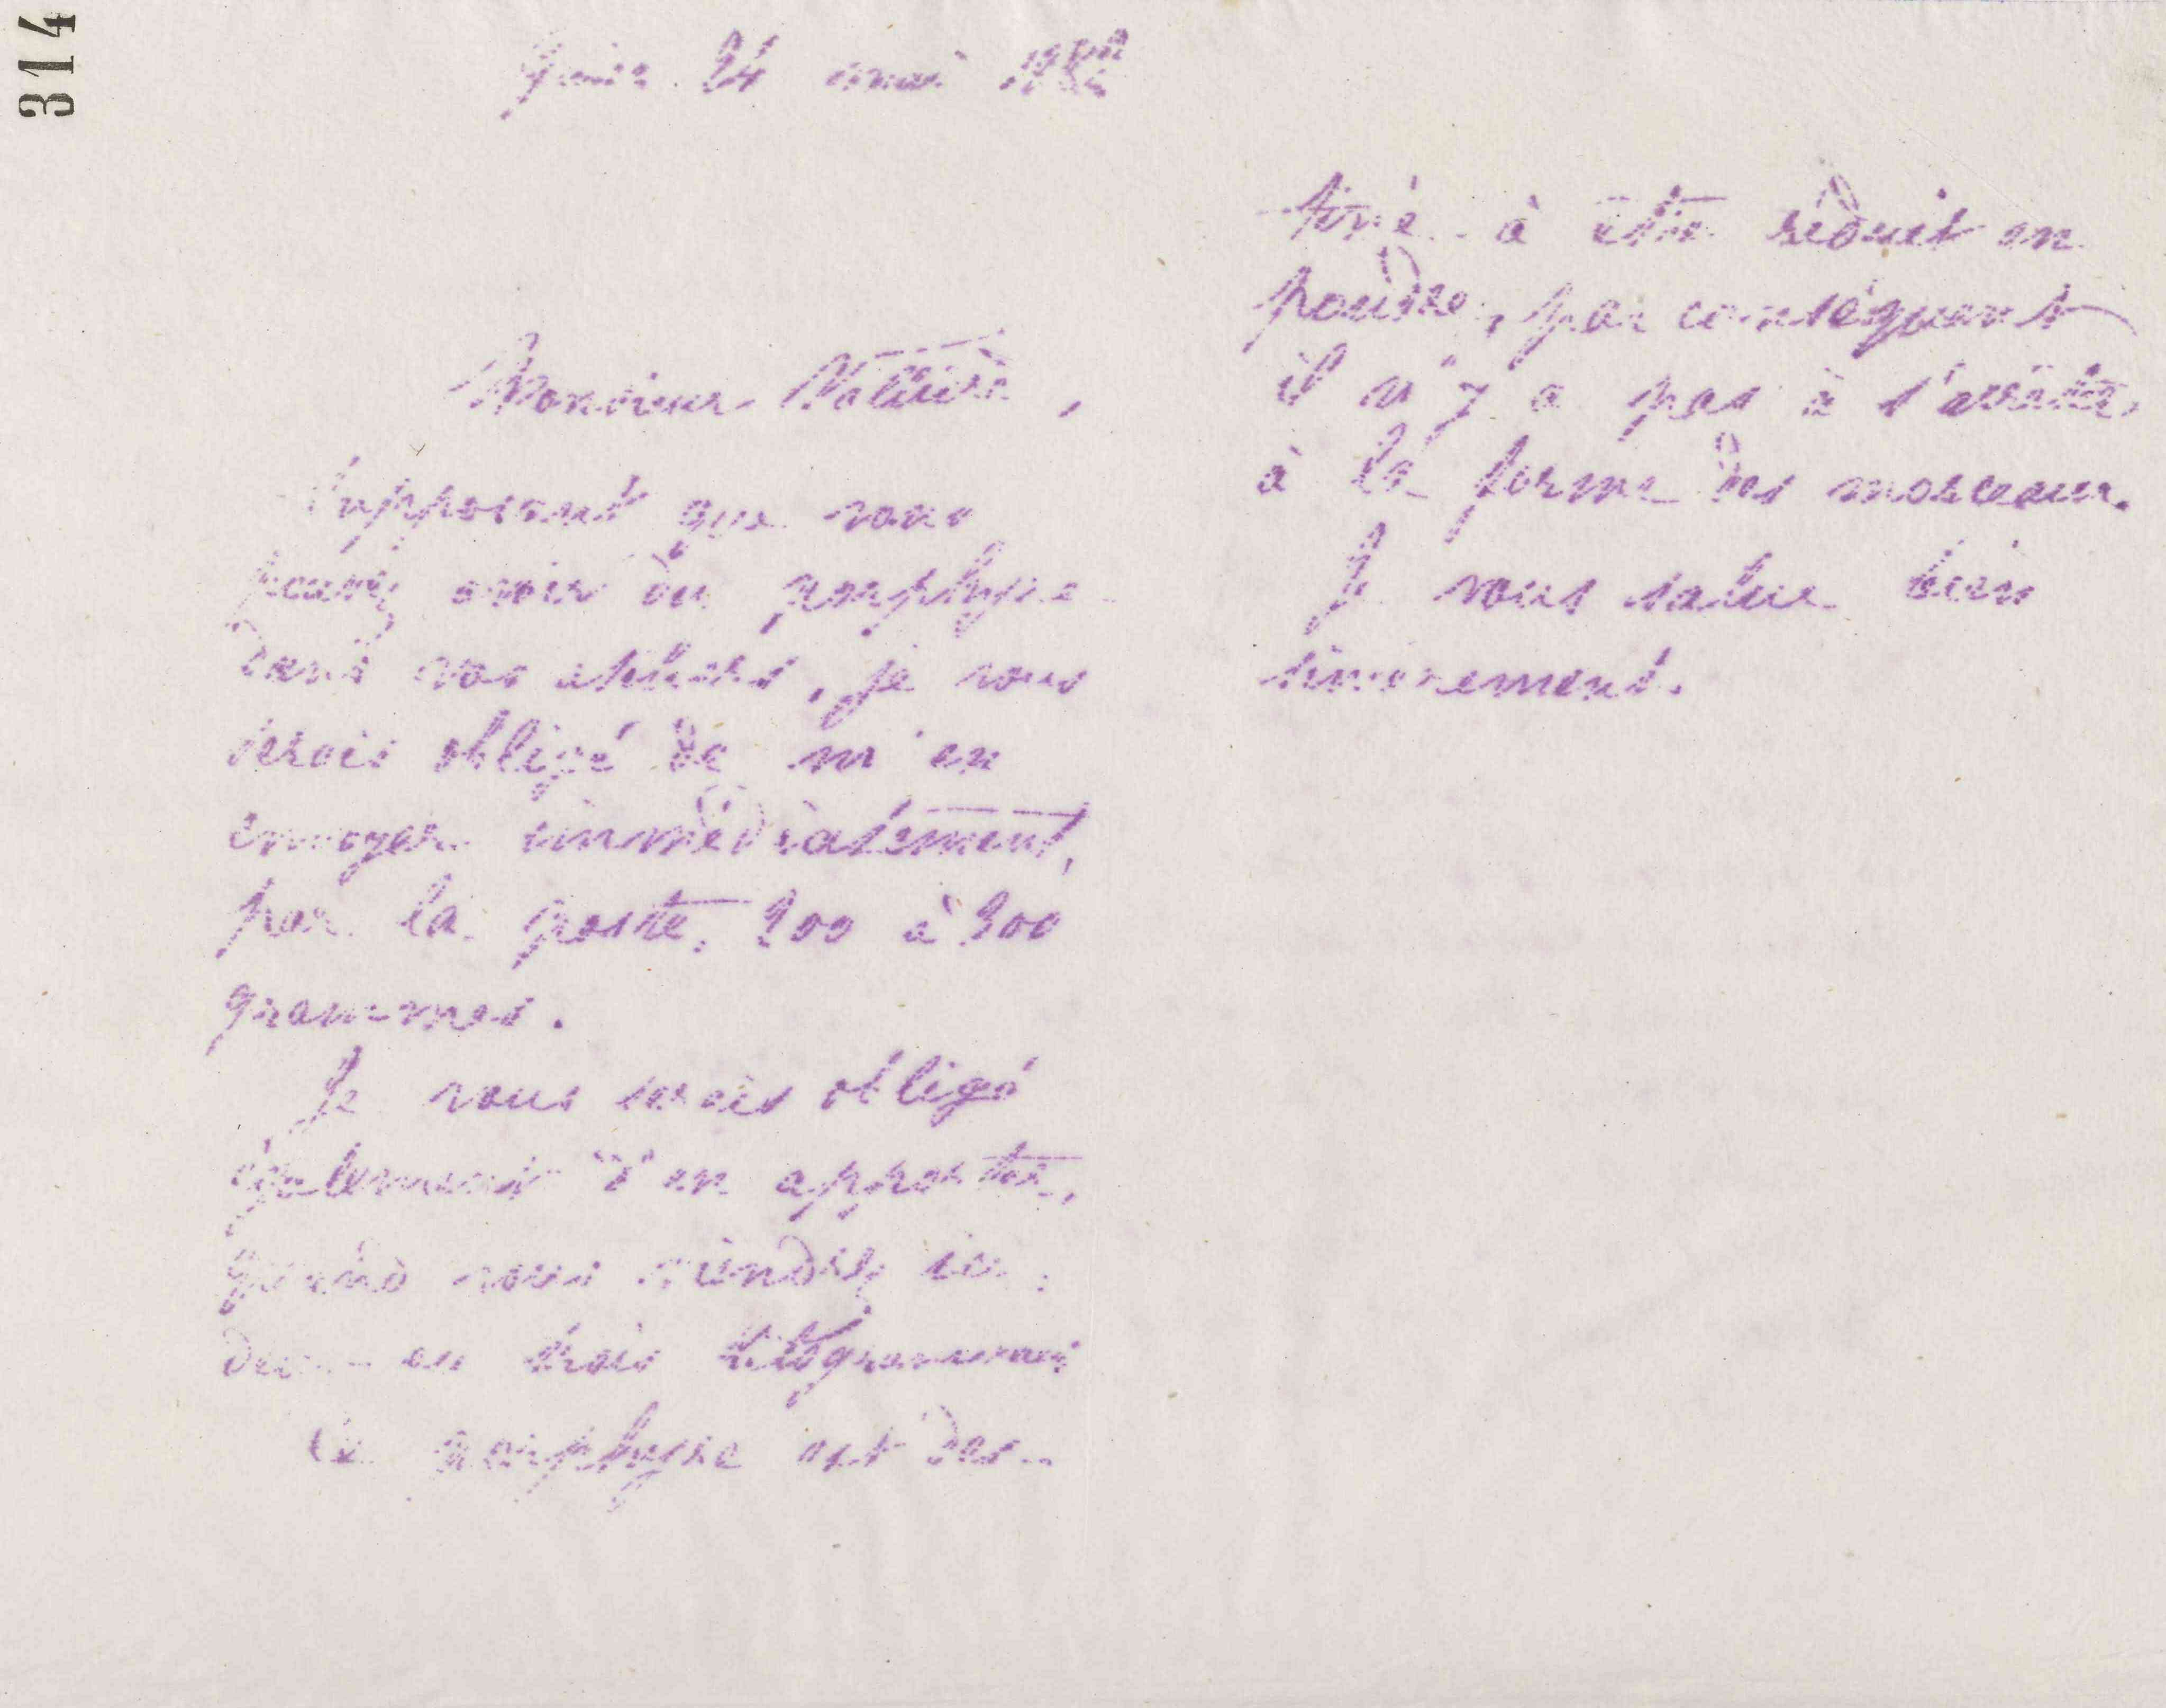 314
Guise 24 mai
Monsieur
Supposant que vous
pouvez avoir du porphyre
dans vos ateliers, je vous
serais obligé de m'en
envoyer immédiatement,
par la poste, 200 à 300
grammes.
Je vous serais obligé
également d'en apporter,
quand vous viendrez ici,
deux ou trois kilogrammes
Ce porphyre est des-
tiné à être réduit en
poudre, par conséquent
il n'y a pas à s'arrêter
à la forme des morceaux.
Je vous salue bien
sincèrement.